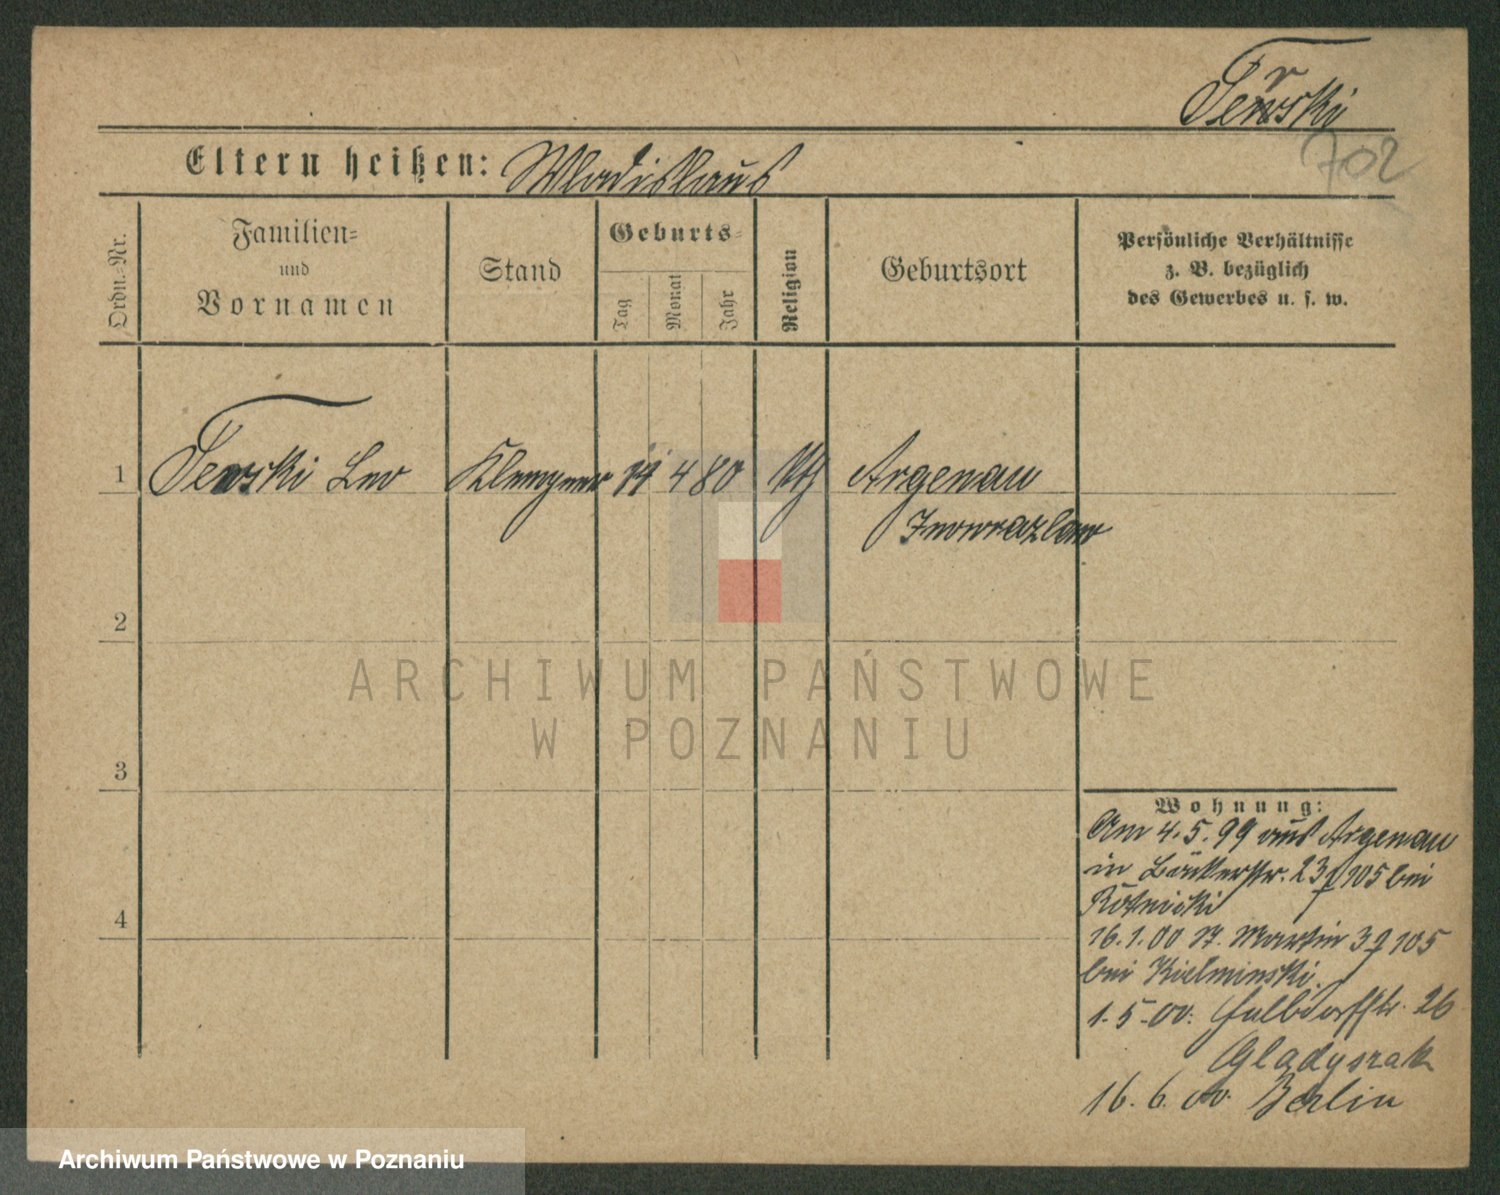 Terski
702
Eltern heißen: Wladislaus
Ordn.-Nr.
Familien-
und
Vornamen
Stand
Geburts-
Tag
Monat
Jahr
Religion
Geburtsort
Persönliche Verhältnisse
z. B. bezüglich
des Gewerbes u. s. w.
1 Terski Leo Klempner 14 4 80 kth Argenau
Inowrazlaw
2
3
4
ARCHIWUM PAŃSTWOWE
W POZNANIU
Wohnung:
Am 4.5.99 aus Argenau
in Bäckerstr. 23 105 bei
16.1.00 St. Martin 39 105
bei Kielminski.
1.5.00. Halbdorfstr. 26
Gladyszak
16.6.00. Berlin
Archiwum Państwowe w Poznaniu